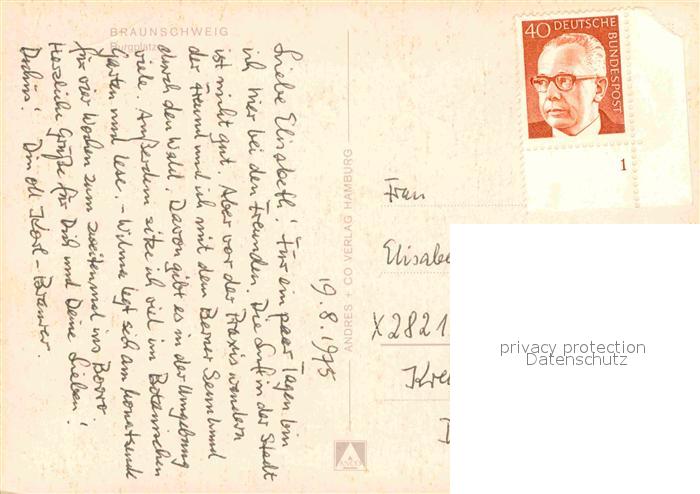 BRAUNSCHWEIG
Burgplatz
19.8.1975
Liebe Elisabeth! Für ein paar Tagen bin
ich hier bei den Freunden. Die Luft in der Stadt
ist nicht gut. Aber vor der Praxis wandern
der Freund und ich mit dem Berner Sennhund
durch den Wald. Davon gibt es in der Umgebung
viele. Außerdem sitze ich viel im Botanischen
Garten und lese. - Wilma legt sich am Monatsende
für vier Wochen zum zweitenmal ins
Herzliche Grüße für Dich und Deine Lieben!
Dein alt Karl-
ANDRES + CO VERLAG HAMBURG
ANCO
40 DEUTSCHE
BUNDESPOST
1
Frau
X2821
privacy protection
Datenschutz